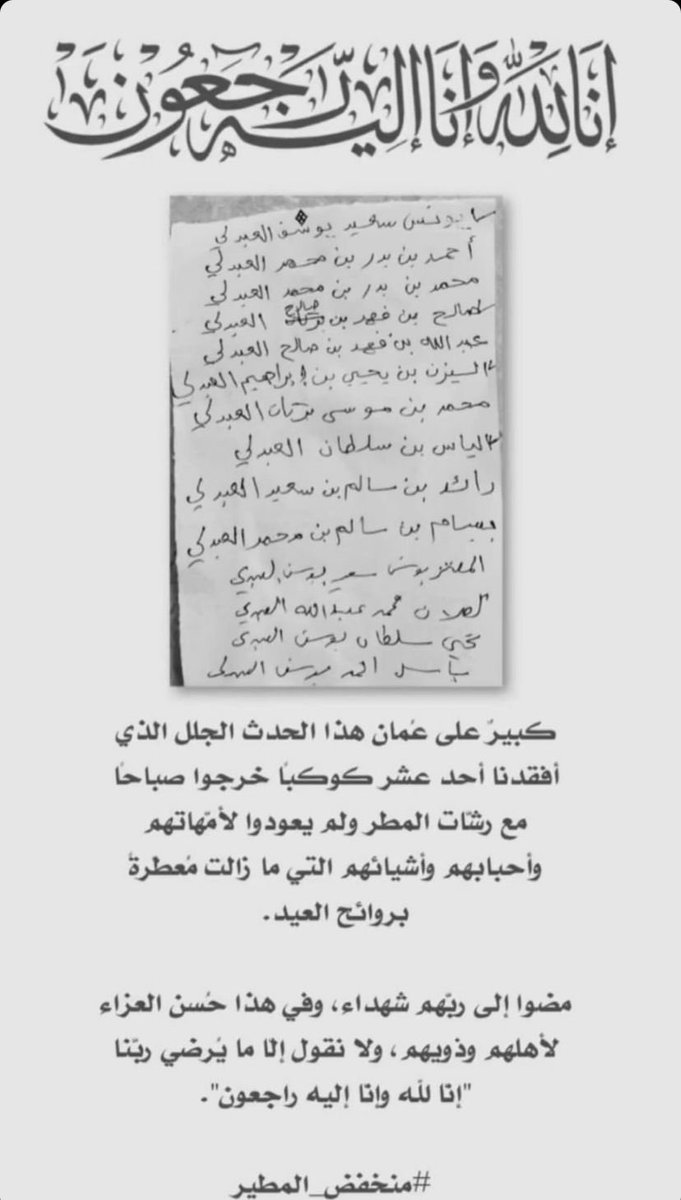 إنا لله وإنا إليه راجعون
يونس سعيد يوسف العبدلي
أحمد بن بدر بن محمد العبدلي
محمد بن بدر بن محمد العبدلي
صالح بن فهد بن صالح العبدلي
عبد الله بن فهد بن صالح العبدلي
اليزن بن يحيى بن إبراهيم العبدلي
محمد بن موسى بركات العبدلي
الياس بن سلطان العبدلي
رائد بن سالم بن سعيد العبدلي
بسام بن سالم بن محمد العبدلي
سعيد يونس العبدلي
محمد عبدالله العبدلي
يحيى سلطان يونس العبدلي
باسل العبدلي
كبيرٌ على عُمان هذا الحدث الجلل الذي
أفقدنا أحد عشر كوكبًا خرجوا صباحًا
مع رشّات المطر ولم يعودوا لأمّهاتهم
وأحبابهم وأشيائهم التي ما زالت مُعطرةً
بروائح العيد.
مضوا إلى ربّهم شهداء، وفي هذا حُسن العزاء
لأهلهم وذويهم، ولا نقول إلا ما يُرضي ربّنا
"إنا لله وانا إليه راجعون".
#منخفض_المطير